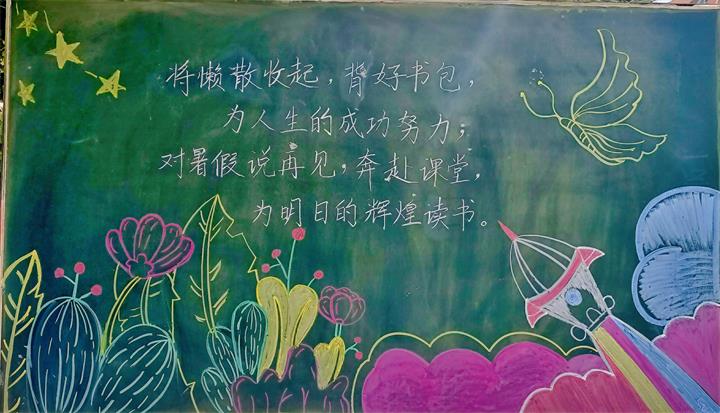 将懒散收起，背好书包，
为人生的成功努力；
对暑假说再见，奔赴课堂，
为明日的辉煌读书。